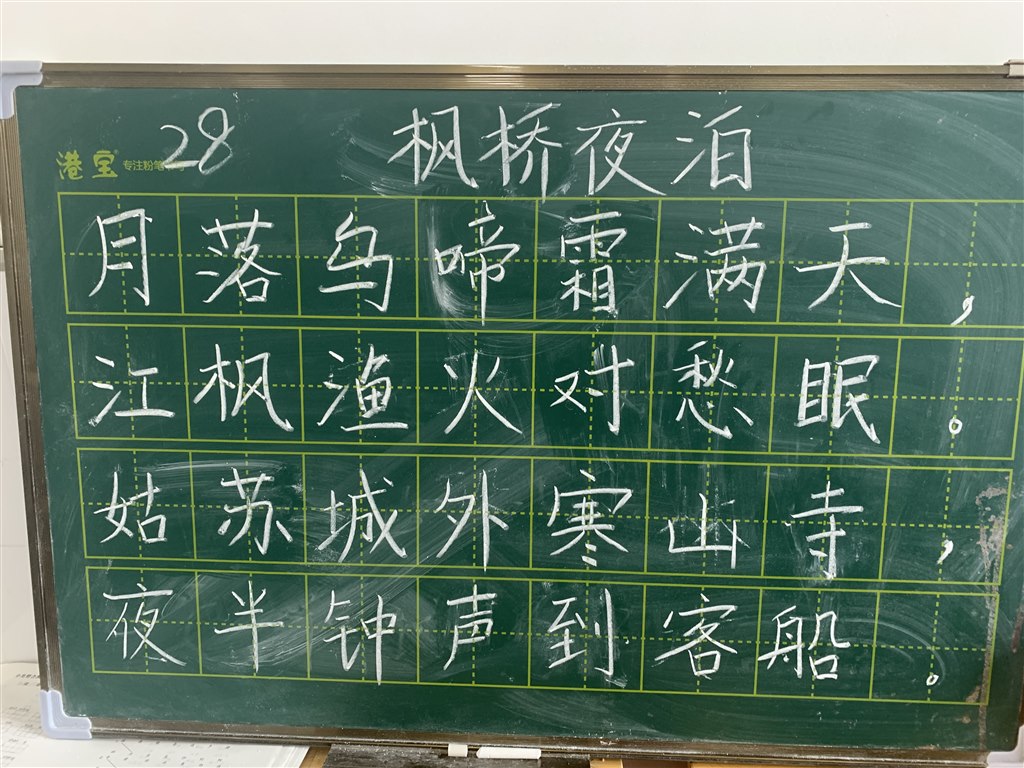 28 枫桥夜泊
港宝 专注粉笔
月落乌啼霜满天，
江枫渔火对愁眠。
姑苏城外寒山寺，
夜半钟声到客船。